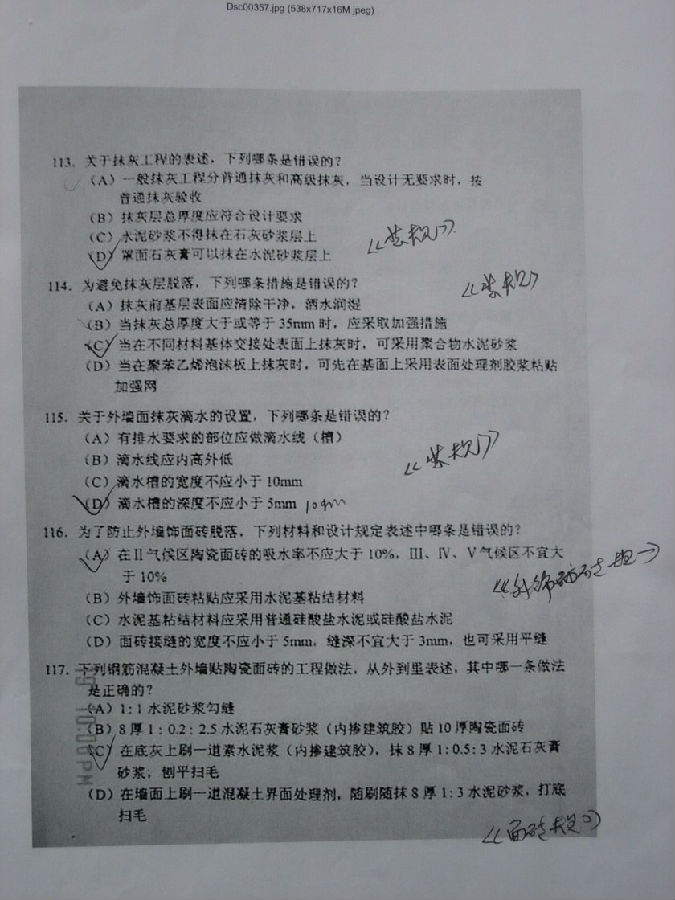 Dsc00357.jpg (538x717x16M jpeg)
113. 关于抹灰工程的表述，下列哪条是错误的？
(A) 一般抹灰工程分普通抹灰和高级抹灰，当设计无要求时，按
普通抹灰验收
(B) 抹灰层总厚度应符合设计要求
(C) 水泥砂浆不得抹在石灰砂浆层上
(D) 罩面石灰膏可以抹在水泥砂浆层上
《装规》
114. 为避免抹灰层脱落，下列哪条措施是错误的？
《装规》
(A) 抹灰前基层表面应清除干净，洒水润湿
(B) 当抹灰总厚度大于或等于 35mm 时，应采取加强措施
(C) 当在不同材料基体交接处表面上抹灰时，可采用聚合物水泥砂浆
(D) 当在聚苯乙烯泡沫板上抹灰时，可先在基面上采用表面处理剂胶浆粘贴
加强网
115. 关于外墙面抹灰滴水的设置，下列哪条是错误的？
(A) 有排水要求的部位应做滴水线（槽）
(B) 滴水线应内高外低
《装规》
(C) 滴水槽的宽度不应小于 10mm
(D) 滴水槽的深度不应小于 5mm 10mm
116. 为了防止外墙饰面砖脱落，下列材料和设计规定表述中哪条是错误的？
(A) 在Ⅱ气候区陶瓷面砖的吸水率不应大于 10%，Ⅲ、Ⅳ、Ⅴ气候区不宜大
于 10%
(B) 外墙饰面砖粘贴应采用水泥基粘结材料
(C) 水泥基粘结材料应采用普通硅酸盐水泥或硅酸盐水泥
(D) 面砖接缝的宽度不应小于 5mm，缝深不宜大于 3mm，也可采用平缝
117. 下列钢筋混凝土外墙贴陶瓷面砖的工程做法，从外到里表述，其中哪一条做法
是正确的？
(A) 1:1 水泥砂浆勾缝
(B) 8 厚 1:0.2:2.5 水泥石灰膏砂浆（内掺建筑胶）贴 10 厚陶瓷面砖
(C) 在底灰上刷一道素水泥浆（内掺建筑胶），抹 8 厚 1:0.5:3 水泥石灰膏
砂浆，刨平扫毛
(D) 在墙面上刷一道混凝土界面处理剂，随刷随抹 8 厚 1:3 水泥砂浆，打底
扫毛